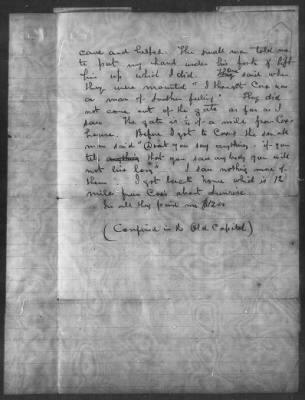 came and helped. The small man told me
to put my hand under his foot & lift
him up which I did. said when
they were mounted "I thought Cox was
a man of Southern feeling". They did
not come out of the gate as far as I
saw. The gate is ½ of a mile from Cox's
house. Before I got to Cox's the small
man said "Don't you say anything, if you
tell anything that you saw anybody you will
not live long". I saw nothing more of
them. I got back home which is 12
miles from Cox's about sunrise.
In all they paid me $12.00
(Confined in the Old Capitol)